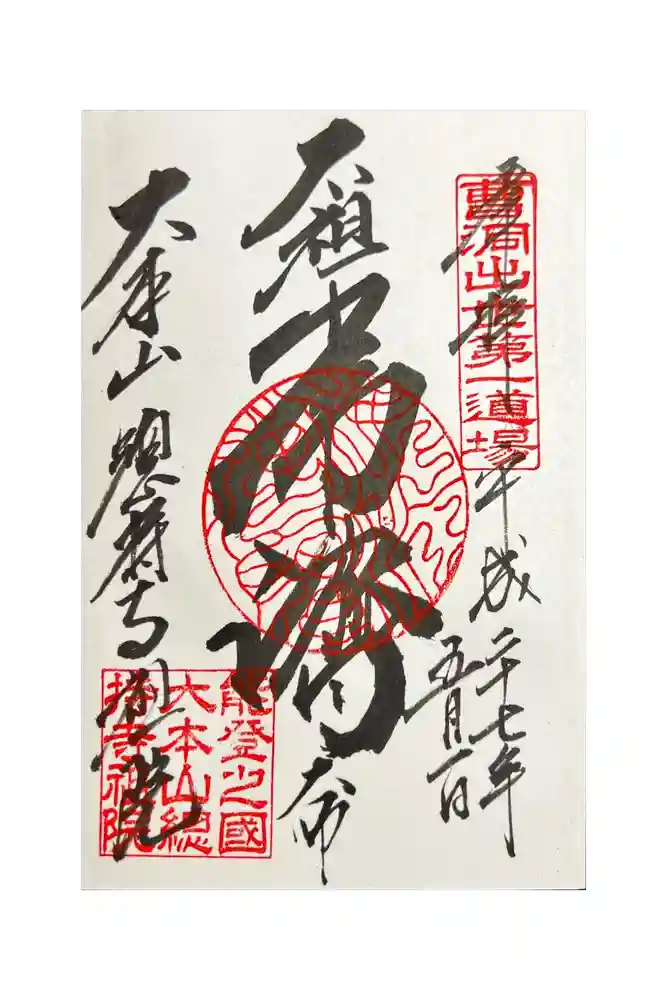 曹洞出世第一道場
奉拝
平成二十七年
五月
太祖常濟大師
大本山總持寺祖院
能登之國
大本山總
持寺祖院